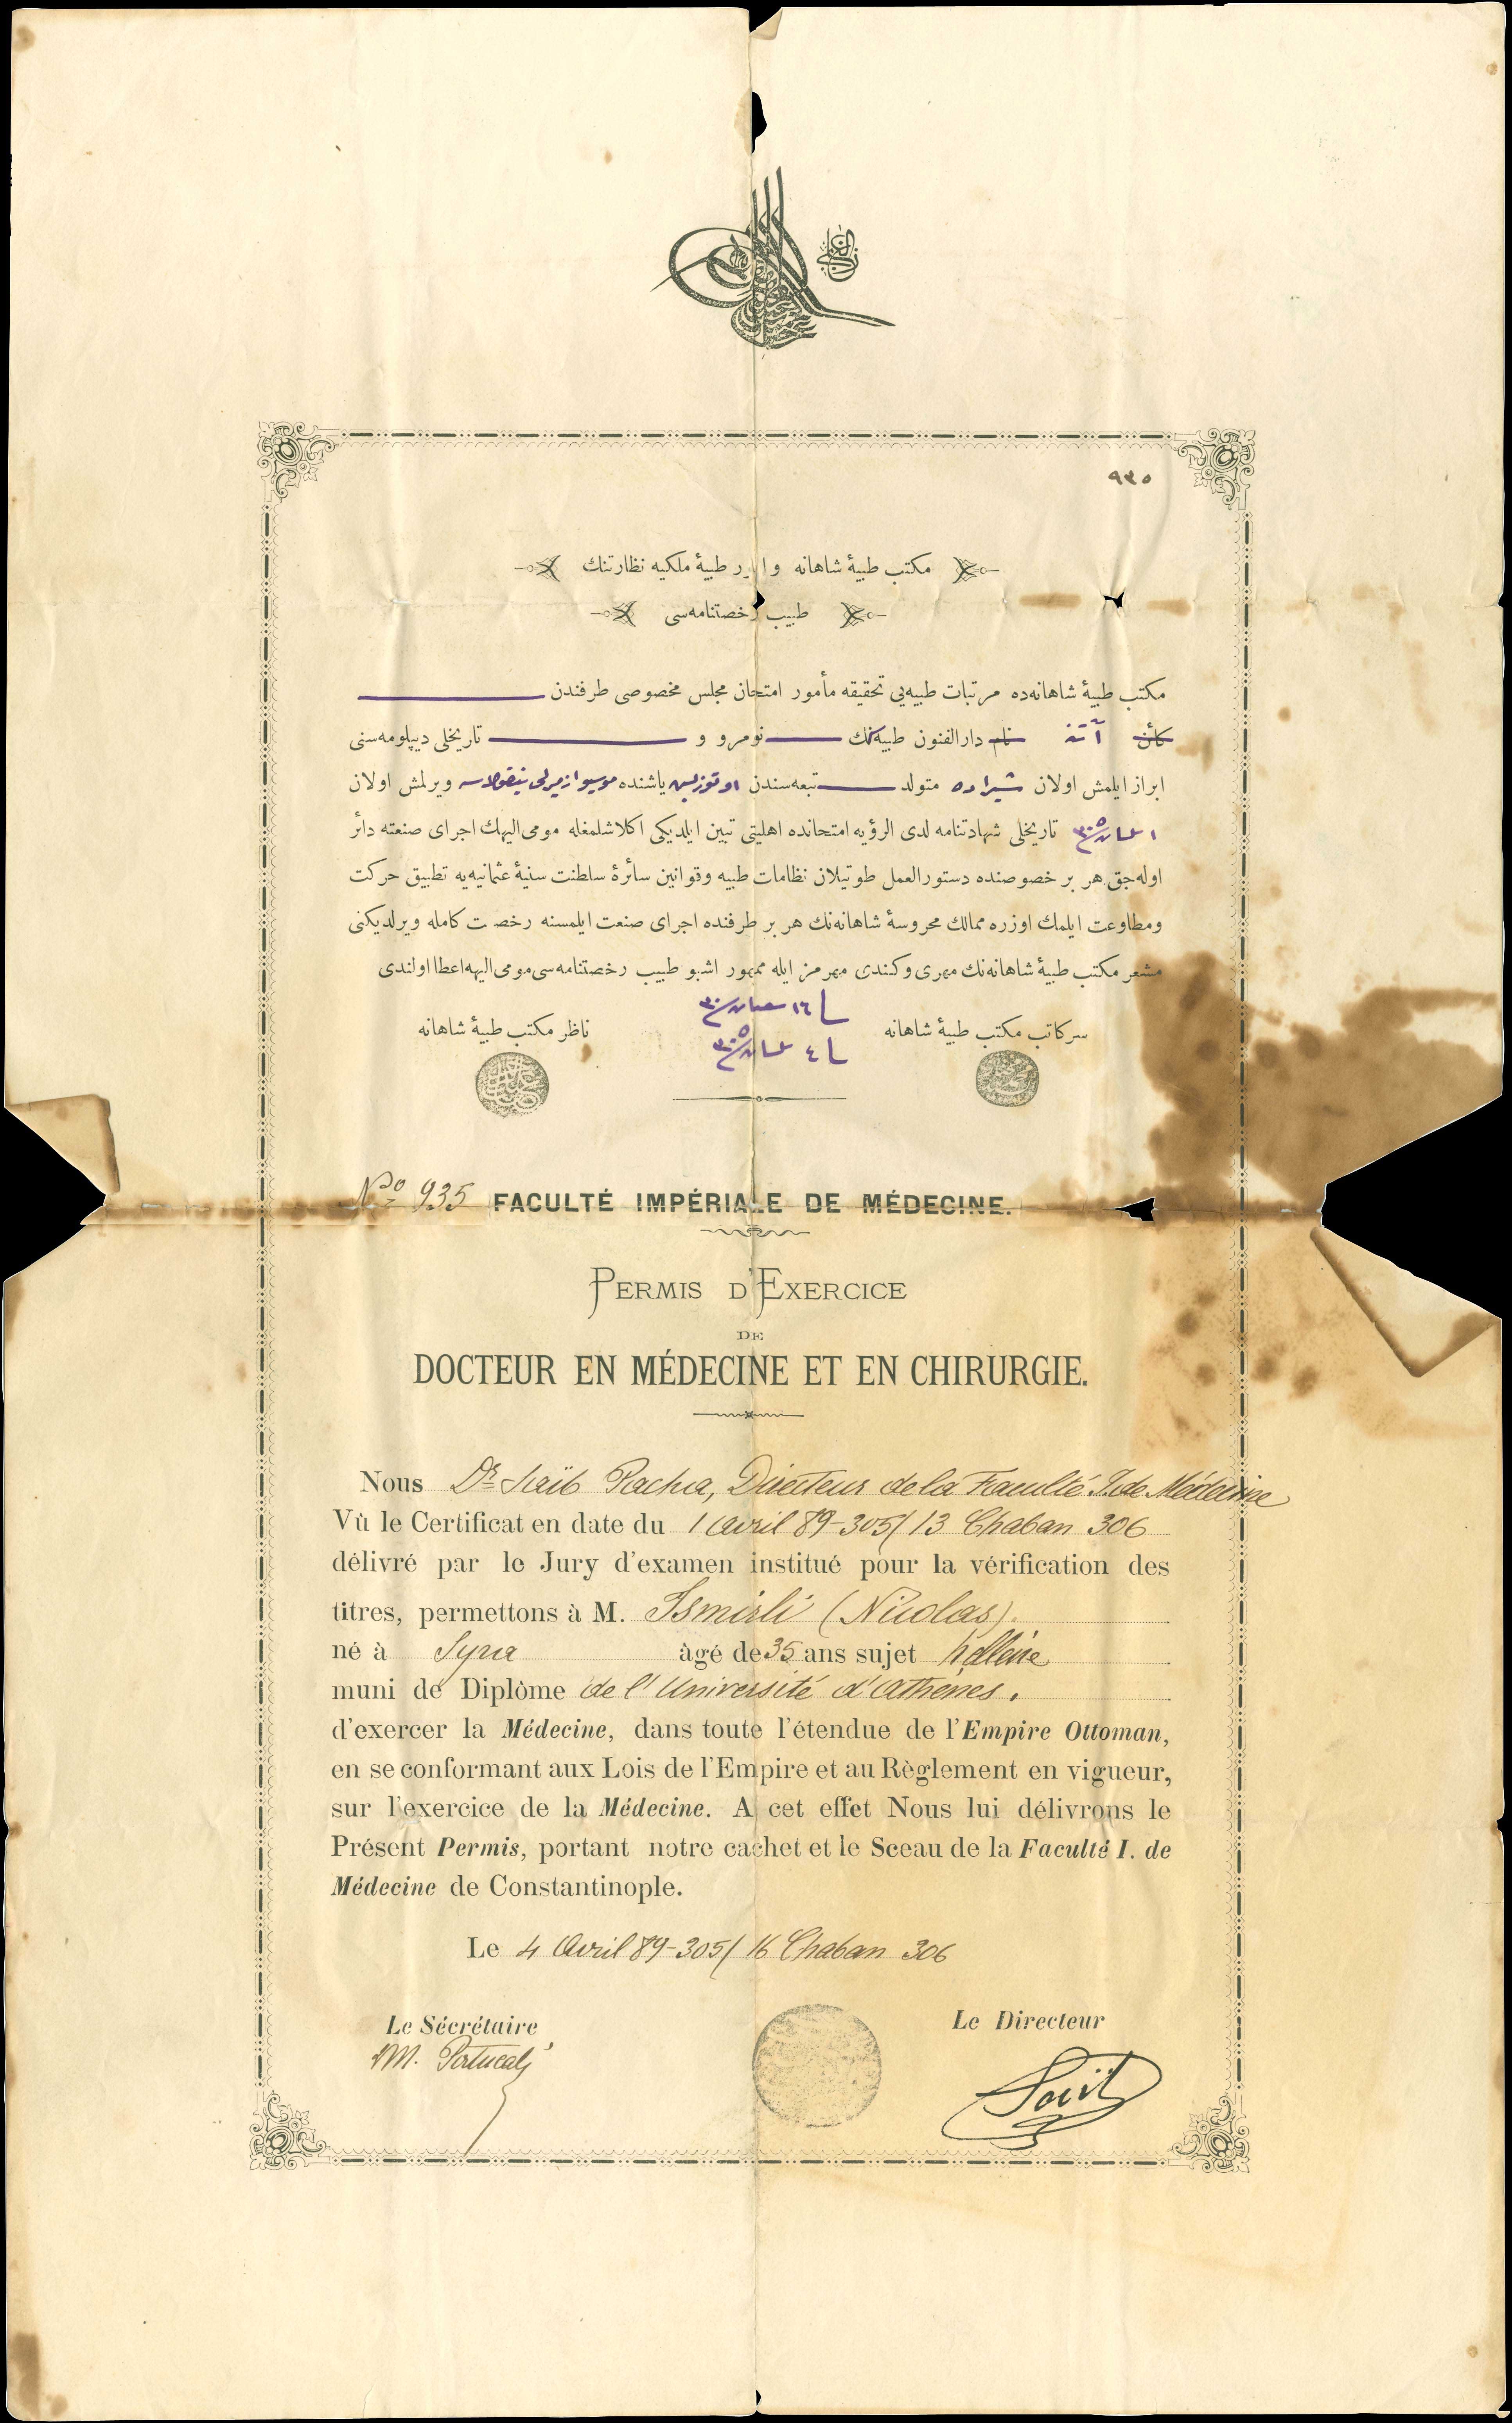 ٩٣٥
مكتب طبيهٔ شاهانه و طبيهٔ ملكيه نظارتنك
طبيب رخصتنامه‌سى
مكتب طبيهٔ شاهانه‌ده مرتبات طبيه‌يى تحقيقه مأمور امتحان مجلس مخصوصى طرفندن
كائن آتنه نام دارالفنون طبيه‌نك نومرو و تاريخلى ديپلومه‌سنى
ابراز ايلمش اولان شيراده متولد تبعه‌سندن اوتوزبش ياشنده موسيو ازميرلى نيقولايه ويرلمش اولان
١ نيسان ٣٠٥ تاريخلى شهادتنامه لدى الرؤيه امتحانده اهليتى تبين ايلديكى اكلاشلمغله مومى اليهك اجراى صنعته دائر
اوله‌جق هر بر خصوصنده دستورالعمل طوتيلان نظامات طبيه وقوانين سائرهٔ سلطنت سنيهٔ عثمانيه‌يه تطبيق حركت
ومطاوعت ايلمك اوزره ممالك محروسهٔ شاهانه‌نك هر بر طرفنده اجراى صنعت ايلمسنه رخصت كامله ويرلديكنى
مشعر مكتب طبيهٔ شاهانه‌نك مهرى وكندى مهرمز ايله ممهور اشبو طبيب رخصتنامه‌سى مومى اليهه اعطا اولندى
١٦ شعبان ٣٠٦
سركاتب مكتب طبيهٔ شاهانه ناظر مكتب طبيهٔ شاهانه
٤ نيسان ٣٠٥
No 935 FACULTÉ IMPÉRIALE DE MÉDECINE.
PERMIS D'EXERCICE
DE
DOCTEUR EN MÉDECINE ET EN CHIRURGIE.
Nous Dr Saïb Pacha, Directeur de la Faculté I. de Médecine
Vû le Certificat en date du 1 Avril 89-305/13 Chaban 306
délivré par le Jury d'examen institué pour la vérification des
titres, permettons à M. Ismirli (Nicolas).
né à Syra âgé de 35 ans sujet hellène
muni de Diplôme de l'Université d'Athènes.
d'exercer la Médecine, dans toute l'étendue de l'Empire Ottoman,
en se conformant aux Lois de l'Empire et au Règlement en vigueur,
sur l'exercice de la Médecine. A cet effet Nous lui délivrons le
Présent Permis, portant notre cachet et le Sceau de la Faculté I. de
Médecine de Constantinople.
Le 4 Avril 89-305/16 Chaban 306
Le Sécrétaire Le Directeur
M. Portucaly Saïb